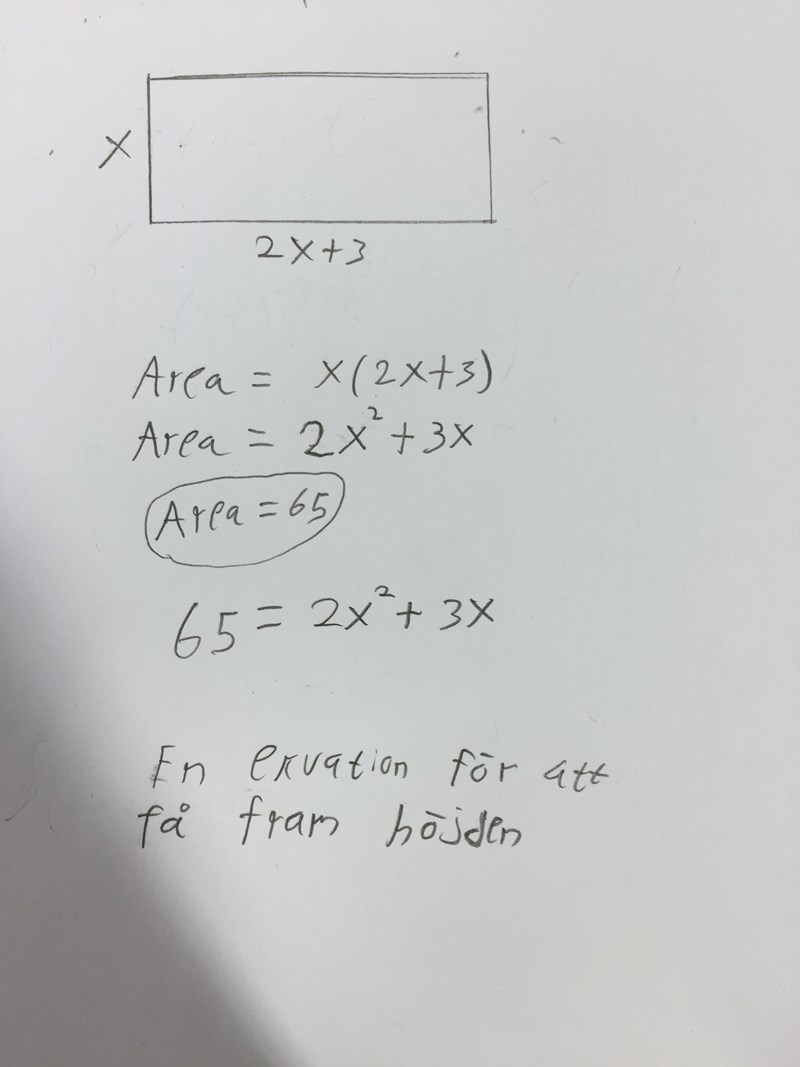 X
2X+3
Area = X(2X+3)
Area = 2X²+3X
Area = 65
65 = 2X²+ 3X
En ekvation för att
få fram höjden